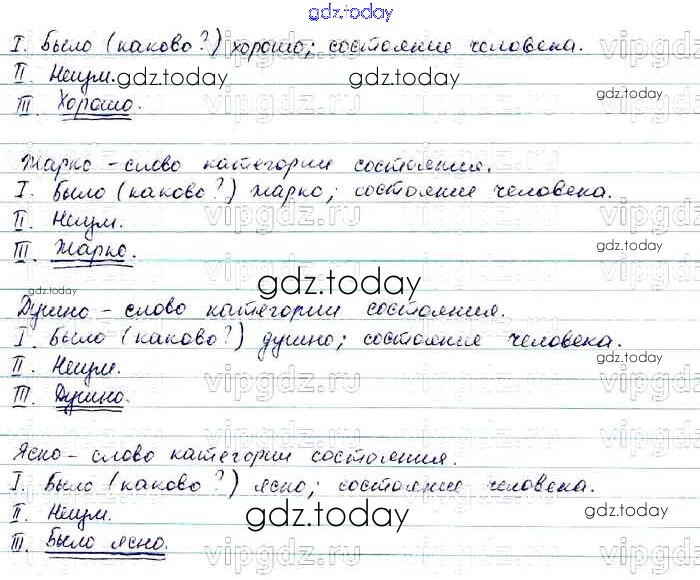 gdz.today
I. Было (каково?) хорошо; состояние человека.
II. Неизм.
III. Хорошо.
Жарко – слово категории состояния.
I. Было (каково?) жарко; состояние человека.
II. Неизм.
III. Жарко.
Душно – слово категории состояния.
I. Было (каково?) душно; состояние человека.
II. Неизм.
III. Душно.
Ясно – слово категории состояния.
I. Было (каково?) ясно; состояние человека.
II. Неизм.
III. Было ясно.
gdz.today
gdz.today
gdz.today
gdz.today
gdz.today
gdz.today
gdz.today
gdz.today
gdz.today
gdz.today
vipgdz.ru
vipgdz.ru
vipgdz.ru
vipgdz.ru
vipgdz.ru